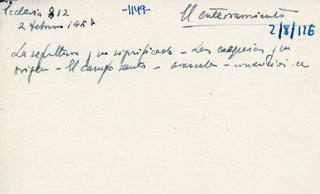 Ecclesia 812
2 febrero 195
-1149-
El enterramiento
2/8/126
La sepultura, su significado - Las exequias, su
origen - El campo santo - aranceles -